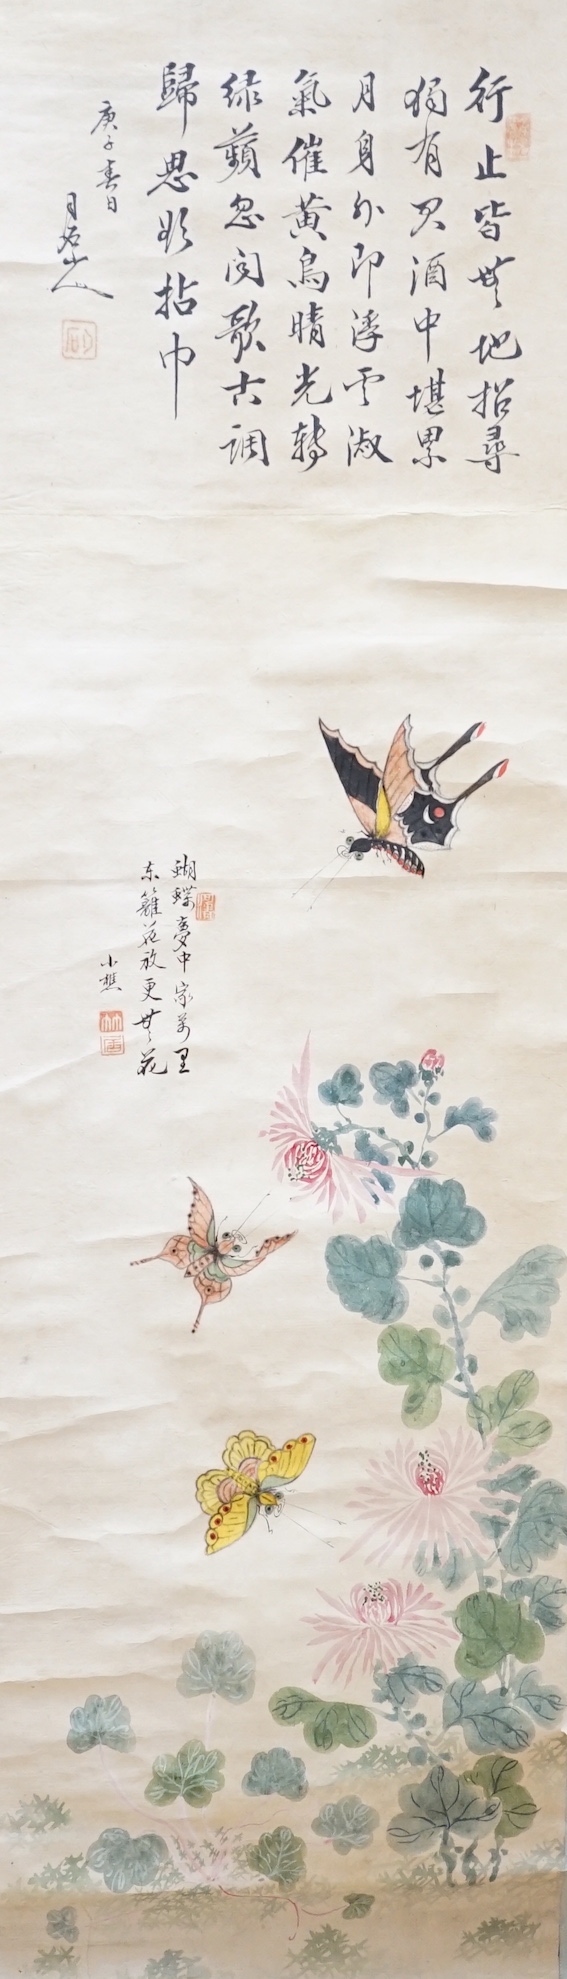 行止皆無地招尋
獨有君酒中堪累
月身外即浮雲淑
氣催黃鳥晴光轉
綠蘋忽聞歌古調
歸思欲拈巾
庚子春日
月石山人
蝴蝶夢中家萬里
东籬花放更無花
小樵